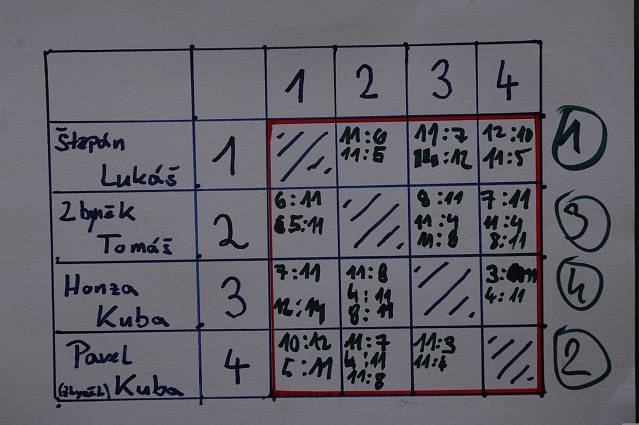 1 2 3 4
Štěpán Lukáš 1 11:6 11:7 12:10 1
11:5 14:12 11:5
Zbyněk Tomáš 2 6:11 8:11 7:11 3
5:11 11:4 11:4
11:8 8:11
Honza Kuba 3 7:11 11:8 3:11 4
12:14 4:11 4:11
8:11
Pavel (Zbyněk) Kuba 4 10:12 11:7 11:3 2
5:11 4:11 11:4
11:8